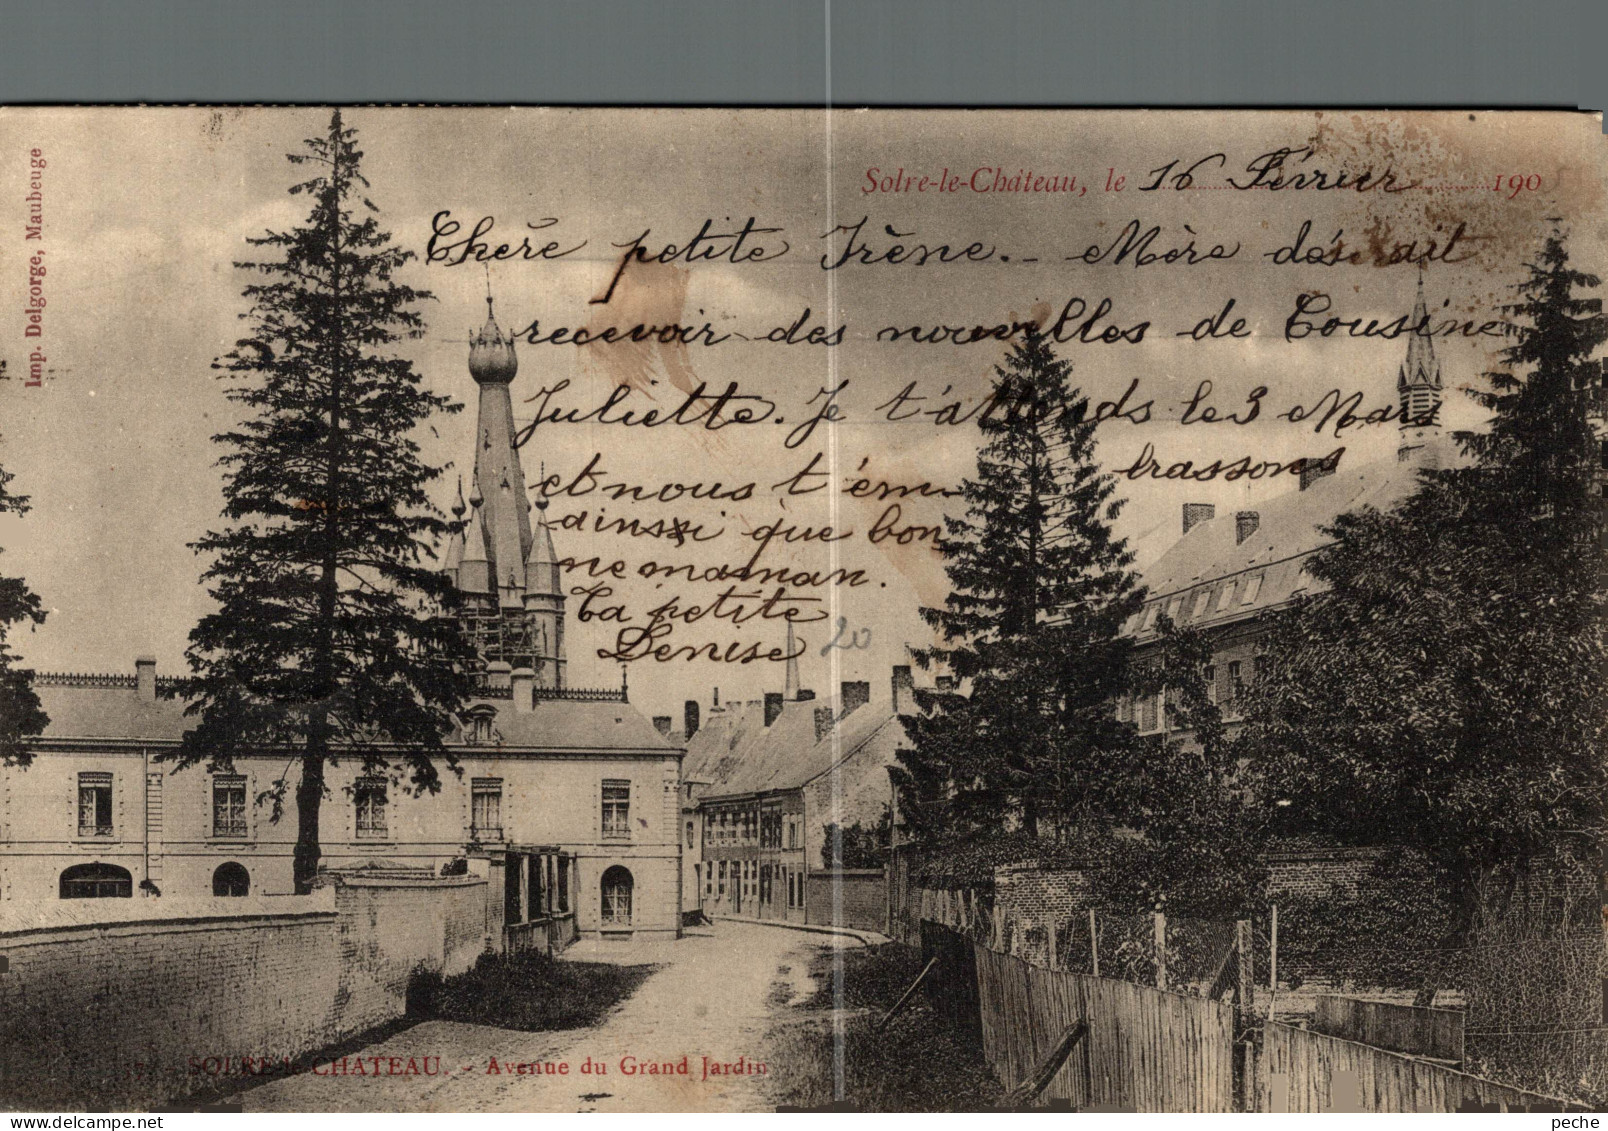 Imp. Delgorge, Maubeuge
Solre-le-Château, le 16 Février 190
Chère petite Irène. - Mère désirait
recevoir des nouvelles de Cousine
Juliette. Je t'attends le 3 Mars
et nous t'em- brassons
ainsi que bon
ne maman.
Ta petite
Denise
20
SOLRE-le-CHATEAU. - Avenue du Grand Jardin
peche